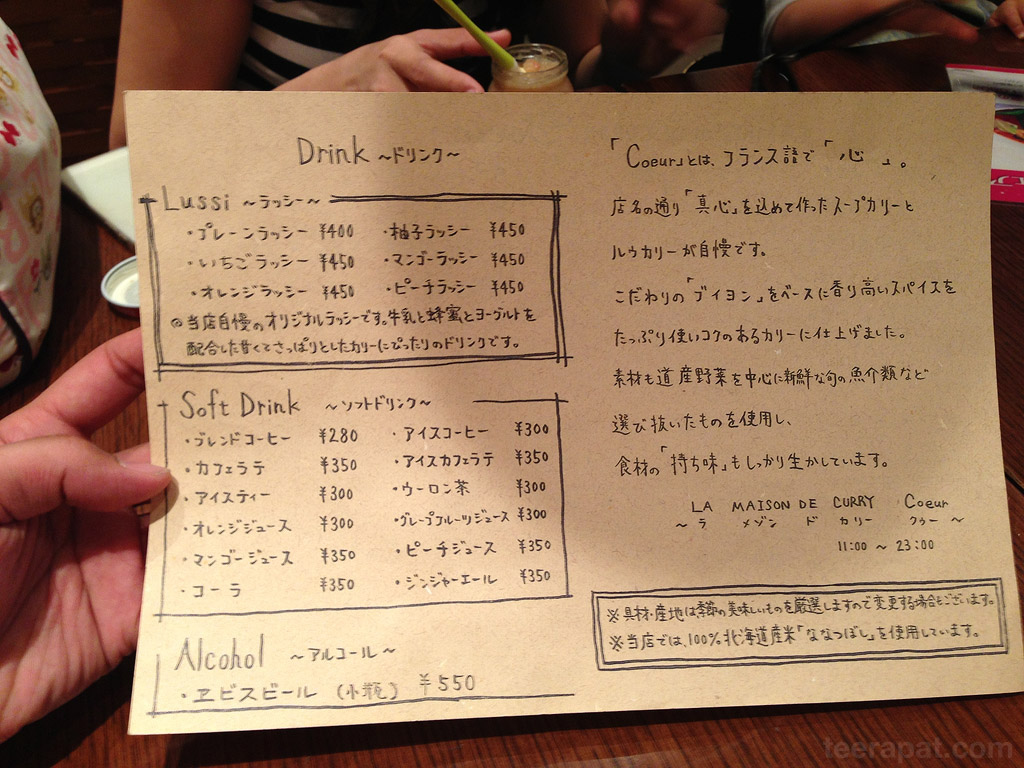 Drink ~ドリンク~
Lussi ~ラッシー~
・プレーンラッシー ¥400 ・柚子ラッシー ¥450
・いちごラッシー ¥450 ・マンゴーラッシー ¥450
・オレンジラッシー ¥450 ・ピーチラッシー ¥450
◎当店自慢のオリジナルラッシーです。牛乳と蜂蜜とヨーグルトを
配合した甘くてさっぱりとしたカリーにぴったりのドリンクです。
Soft Drink ~ソフトドリンク~
・ブレンドコーヒー ¥280 ・アイスコーヒー ¥300
・カフェラテ ¥350 ・アイスカフェラテ ¥350
・アイスティー ¥300 ・ウーロン茶 ¥300
・オレンジジュース ¥300 ・グレープフルーツジュース ¥300
・マンゴージュース ¥350 ・ピーチジュース ¥350
・コーラ ¥350 ・ジンジャーエール ¥350
Alcohol ~アルコール~
・ヱビスビール (小瓶) ¥550
「Coeur」とは、フランス語で「心」。
店名の通り「真心」を込めて作ったスープカリーと
ルゥカリーが自慢です。
こだわりの「ブイヨン」をベースに香り高いスパイスを
たっぷり使いコクのあるカリーに仕上げました。
素材も道産野菜を中心に新鮮な旬の魚介類など
選び抜いたものを使用し、
食材の「持ち味」もしっかり生かしています。
LA MAISON DE CURRY Coeur
~ ラ メゾン ド カリー クゥー ~
11:00 ~ 23:00
※具材・産地は季節の美味しいものを厳選しますので変更する場合もございます。
※当店では、100%北海道産米「ななつぼし」を使用しています。
teerapat.com